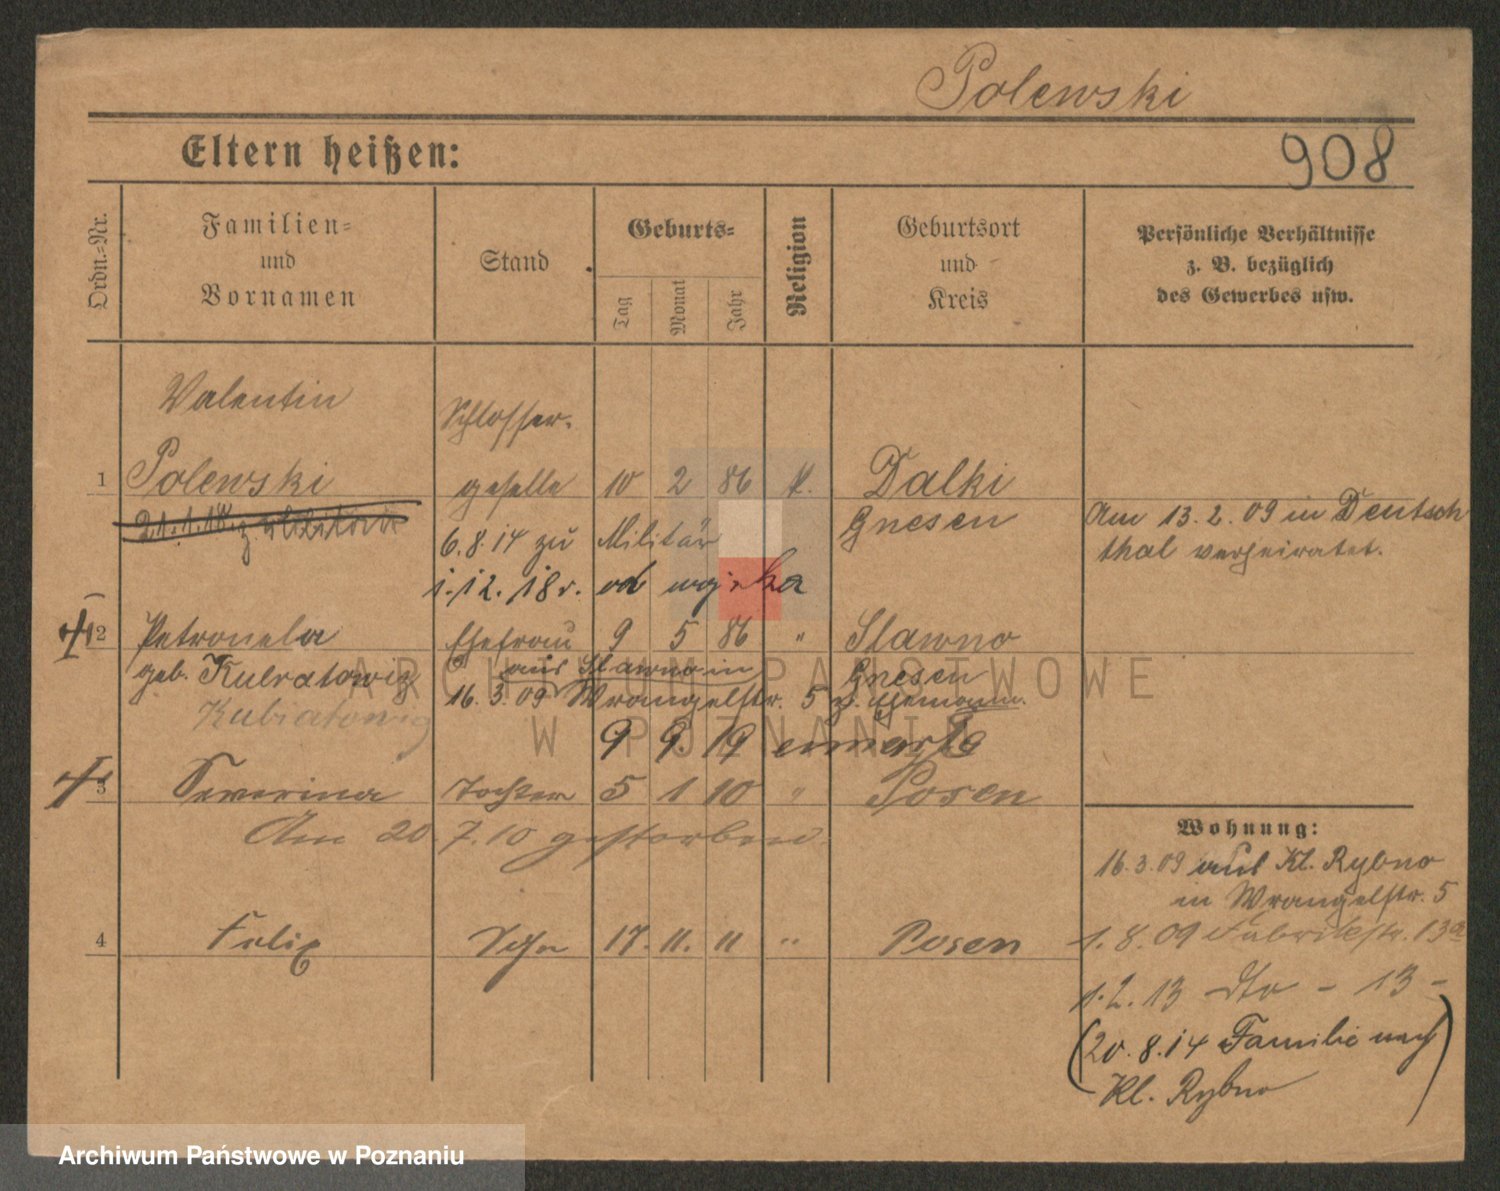 Polewski
Eltern heißen:
908
Ordn.-Nr.
Familien-
und
Vornamen
Stand
Geburts-
Tag
Monat
Jahr
Religion
Geburtsort
und
Kreis
Persönliche Verhältnisse
z. B. bezüglich
des Gewerbes usw.
Valentin
Schlosser-
1 Polewski geselle 10 2 86 k. Dalki
21.1.18 z. Militär
6.8.14 zu Militär
Gnesen
Am 13.2.09 in Deutsch
thal verheiratet.
1.12.18 r. od wojska
2 Petronela Ehefrau 9 5 86 " Slawno
geb. Kubratowig
aus Slawno in
Gnesen
16.3.09 Wrangelstr. 5 z. Ehemann.
Kubiatowig
9 9. 19 umarła
3 Severina Tochter 5 1 10 " Posen
Am 20.7.10 gestorben.
4 Felix Sohn 17. 11. 11 " Posen
Wohnung:
16.3.09 aus Kl. Rybno
in Wrangelstr. 5
1.8.09 Fabrikstr. 13a
1.2.13 dto - 13 -
(20.8.14 Familie nach
Kl. Rybno)
ARCHIWUM PAŃSTWOWE
W POZNANIU
Archiwum Państwowe w Poznaniu